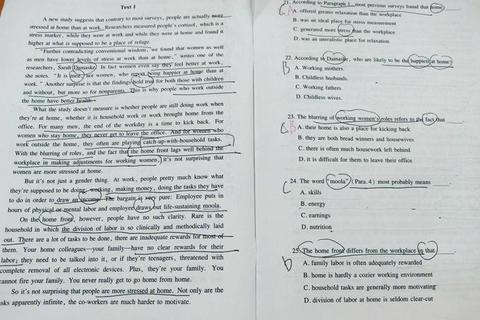 Text 1
A new study suggests that contrary to most surveys, people are actually more
stressed at home than at work. Researchers measured people's cortisol, which is a
stress marker, while they were at work and while they were at home and found it
higher at what is supposed to be a place of refuge.
"Further contradicting conventional wisdom, we found that women as well
as men have lower levels of stress at work than at home," writes one of the
researchers, Sarah Damaske. In fact women even say they feel better at work,
she notes. "It is men, not women, who report being happier at home than at
work." Another surprise is that the findings hold true for both those with children
and without, but more so for nonparents. This is why people who work outside
the home have better health.
What the study doesn't measure is whether people are still doing work when
they're at home, whether it is household work or work brought home from the
office. For many men, the end of the workday is a time to kick back. For
women who stay home, they never get to leave the office. And for women who
work outside the home, they often are playing catch-up-with-household tasks.
With the blurring of roles, and the fact that the home front lags well behind the
workplace in making adjustments for working women, it's not surprising that
women are more stressed at home.
But it's not just a gender thing. At work, people pretty much know what
they're supposed to be doing: working, making money, doing the tasks they have
to do in order to draw an income. The bargain is very pure: Employee puts in
hours of physical or mental labor and employee draws out life-sustaining moola.
On the home front, however, people have no such clarity. Rare is the
household in which the division of labor is so clinically and methodically laid
out. There are a lot of tasks to be done, there are inadequate rewards for most of
them. Your home colleagues—your family—have no clear rewards for their
labor; they need to be talked into it, or if they're teenagers, threatened with
complete removal of all electronic devices. Plus, they're your family. You
cannot fire your family. You never really get to go home from home.
So it's not surprising that people are more stressed at home. Not only are the
tasks apparently infinite, the co-workers are much harder to motivate.
21. According to Paragraph 1, most previous surveys found that home
A. offered greater relaxation than the workplace
B. was an ideal place for stress measurement
C. generated more stress than the workplace
D. was an unrealistic place for relaxation
22. According to Damaske, who are likely to be the happiest at home?
A. Working mothers.
B. Childless husbands.
C. Working fathers.
D. Childless wives.
23. The blurring of working women's roles refers to the fact that
A. their home is also a place for kicking back
B. they are both bread winners and housewives
C. there is often much housework left behind
D. it is difficult for them to leave their office
24. The word "moola" (Para. 4) most probably means
A. skills
B. energy
C. earnings
D. nutrition
25. The home front differs from the workplace in that
A. family labor is often adequately rewarded
B. home is hardly a cozier working environment
C. household tasks are generally more motivating
D. division of labor at home is seldom clear-cut